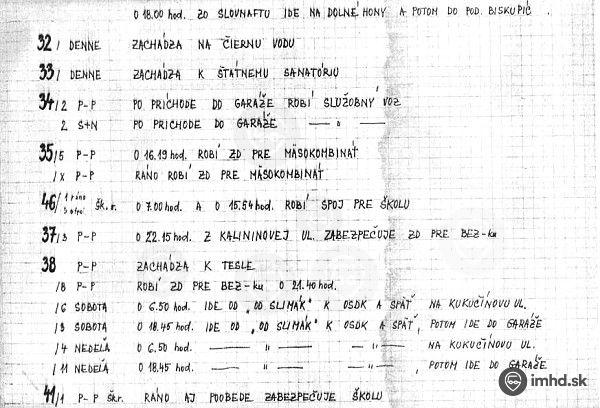 O 18.00 hod. ZO SLOVNAFTU IDE NA DOLNÉ HONY A POTOM DO POD. BISKUPÍC.
32/ DENNE ZACHÁDZA NA ČIERNU VODU
33/ DENNE ZACHÁDZA K ŠTÁTNEMU SANATÓRJU
34/2 P-P PO PRÍCHODE DO GARÁŽE ROBÍ SLUŽOBNÝ VOZ
2 S+N PO PRÍCHODE DO GARÁŽE —— " ——
35/5 P-P O 16.19 hod. ROBÍ ZD PRE MÄSOKOMBINÁT
/X P-P RÁNO ROBÍ ZD PRE MÄSOKOMBINÁT
46/ 1 ráno Šk.r. O 7.00 hod. A O 15.54 hod. ROBÍ SPOJ PRE ŠKOLU
37/3 P-P O 22.15 hod. Z KALININOVEJ UL. ZABEZPEČUJE ZD PRE BEZ-ku
38 P-P ZACHÁDZA K TESLE
/8 P-P ROBÍ ZD PRE BEZ-ku O 21.40 hod.
/6 SOBOTA O 6.50 hod. IDE OD „OD SLIMÁK" K OSDK A SPÄŤ NA KUKUČÍNOVU UL.
/3 SOBOTA O 18.45 hod. IDE OD „OD SLIMÁK" K OSDK A SPÄŤ, POTOM IDE DO GARÁŽE
/4 NEDEĽA O 6.50 hod. —— " —— — " — NA KUKUČÍNOVU UL.
/11 NEDEĽA O 18.45 hod. —— " —— — " — , POTOM IDE DO GARÁŽE
41/1 P-P Škr. RÁNO AJ POOBEDE ZABEZPEČUJE ŠKOLU
imhd.sk